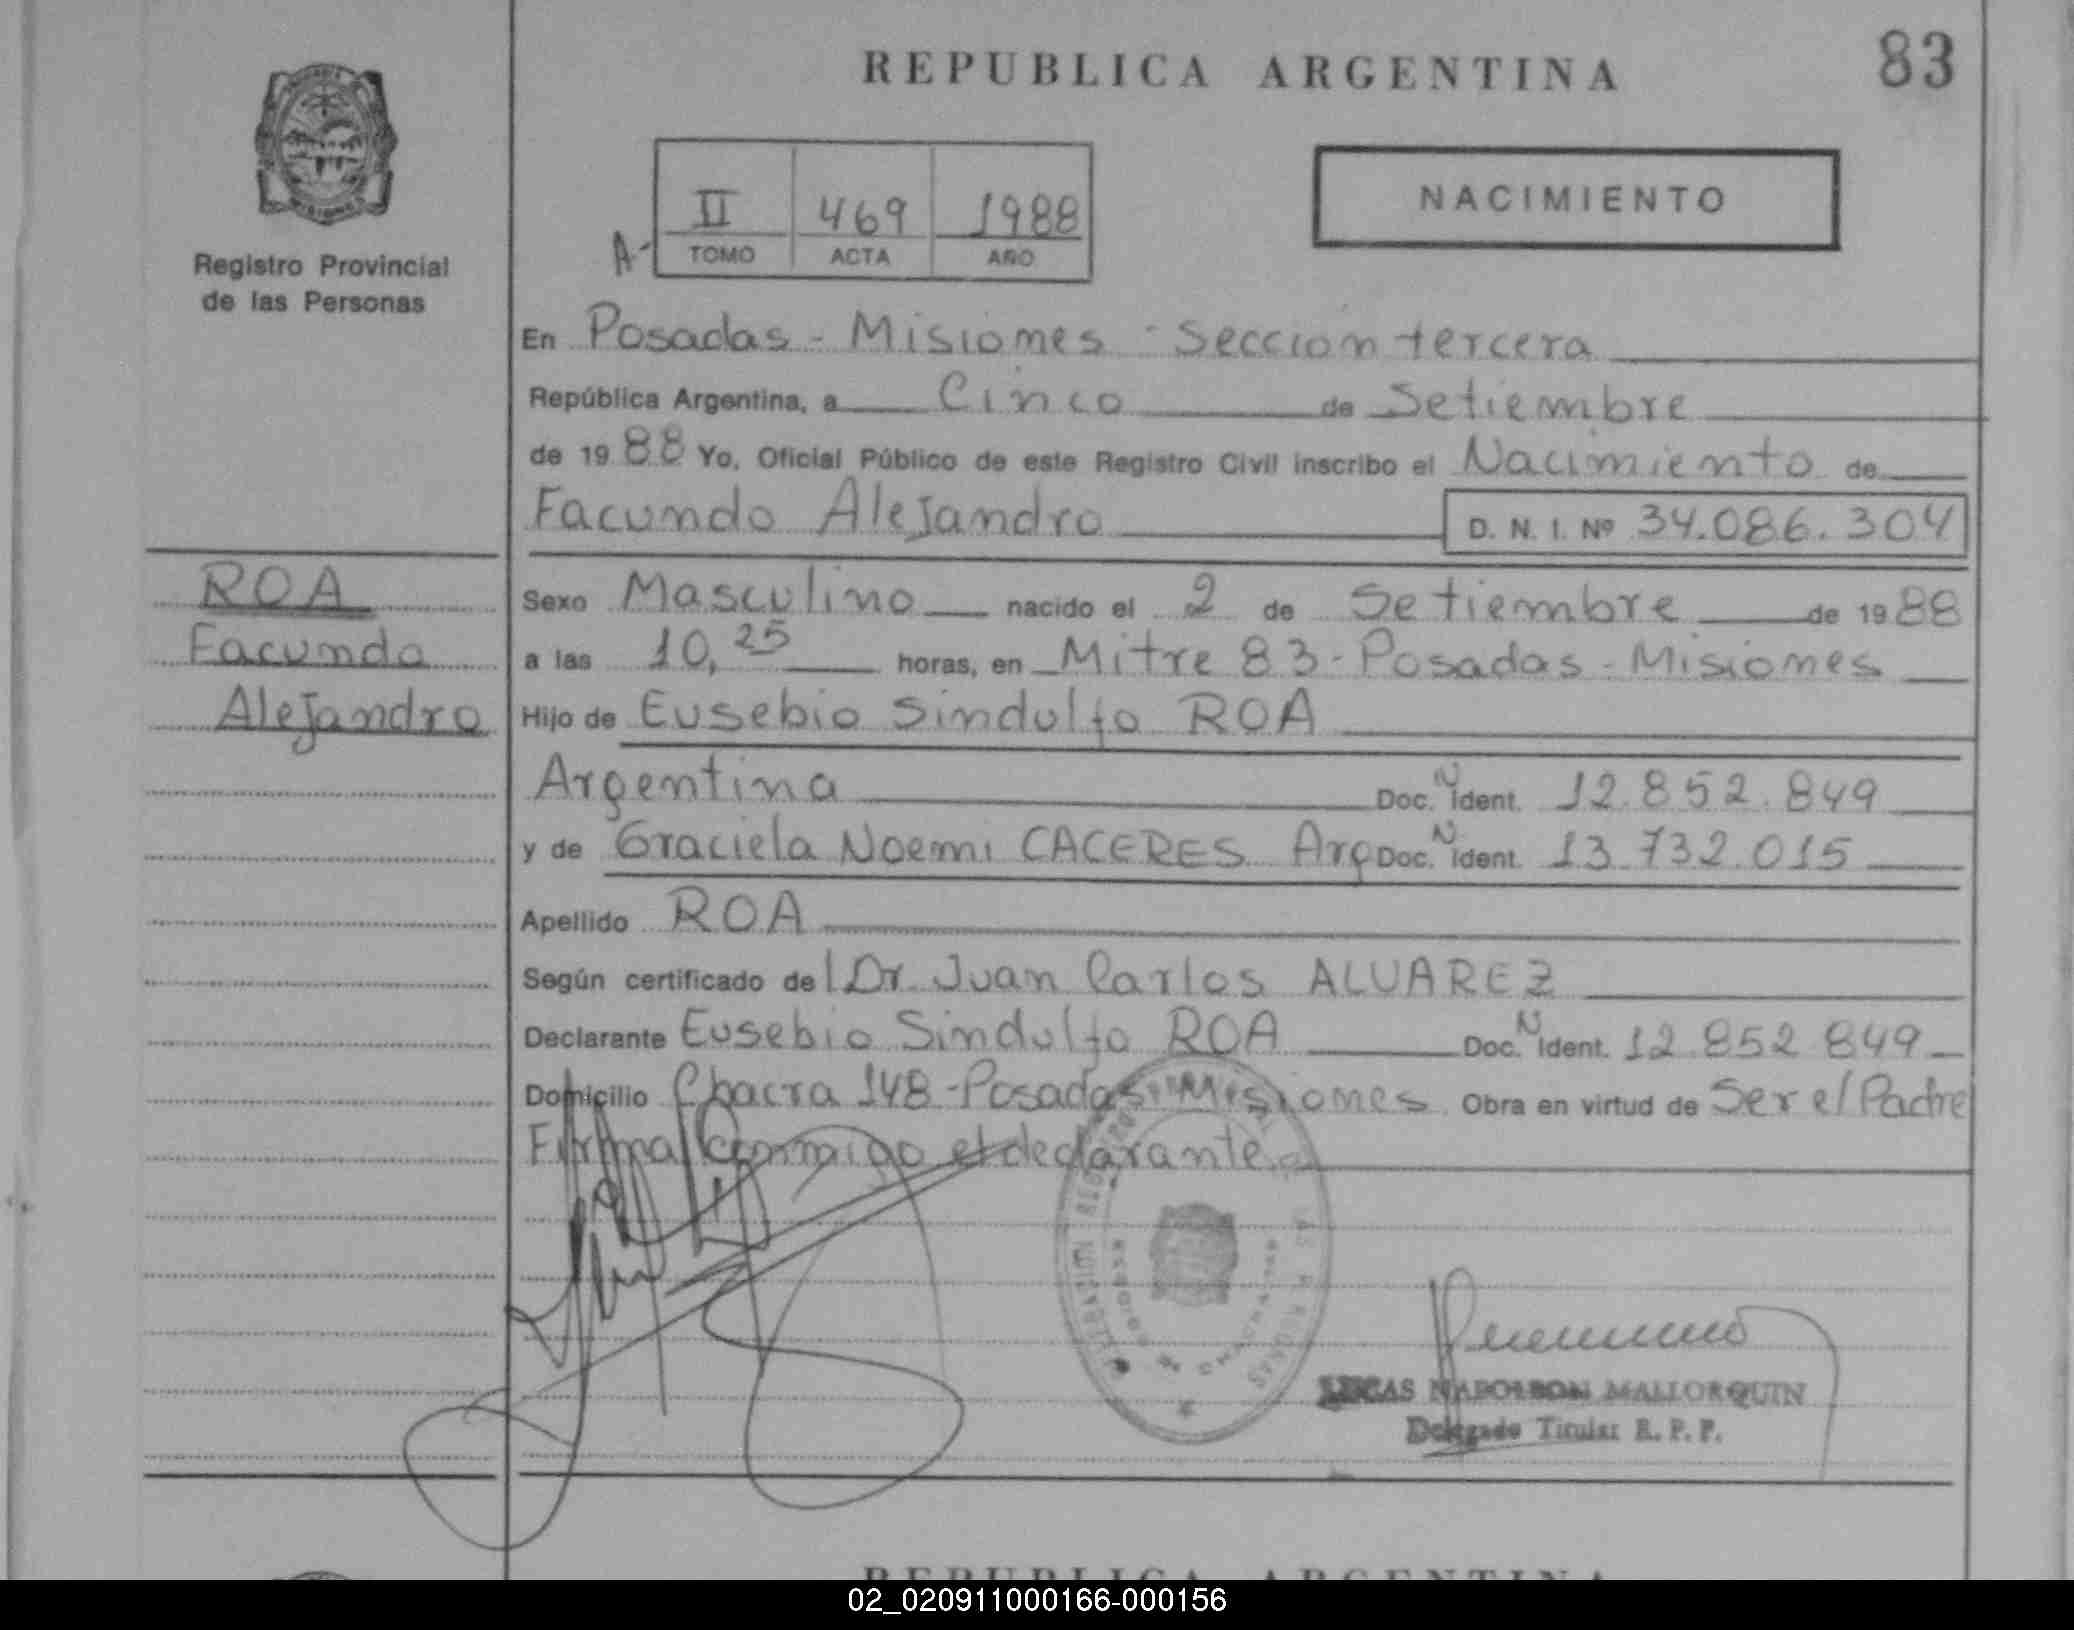 REPUBLICA ARGENTINA
83
Registro Provincial
de las Personas
A-
II 469 1988
TOMO ACTA AÑO
NACIMIENTO
En Posadas - Misiones - Seccion tercera
República Argentina, a Cinco de Setiembre
de 1988 Yo, Oficial Público de este Registro Civil inscribo el Nacimiento de
Facundo Alejandro D. N. I. Nº 34.086.304
ROA
Facundo
Alejandro
Sexo Masculino nacido el 2 de Setiembre de 1988
a las 10,25 horas, en Mitre 83 - Posadas - Misiones
Hijo de Eusebio Sindulfo ROA
Argentina Doc. N Ident. 12.852.849
y de Graciela Noemi CACERES Arg Doc. N Ident. 13.732.015
Apellido ROA
Según certificado del Dr. Juan Carlos ALVAREZ
Declarante Eusebio Sindulfo ROA Doc. N Ident. 12.852.849
Domicilio Chacra 148 - Posadas - Misiones Obra en virtud de Ser el Padre
Firma conmigo el declarante
LUCAS NAPOLEON MALLORQUIN
Delegado Titular R. P. P.
REPUBLICA ARGENTINA
02_020911000166-000156